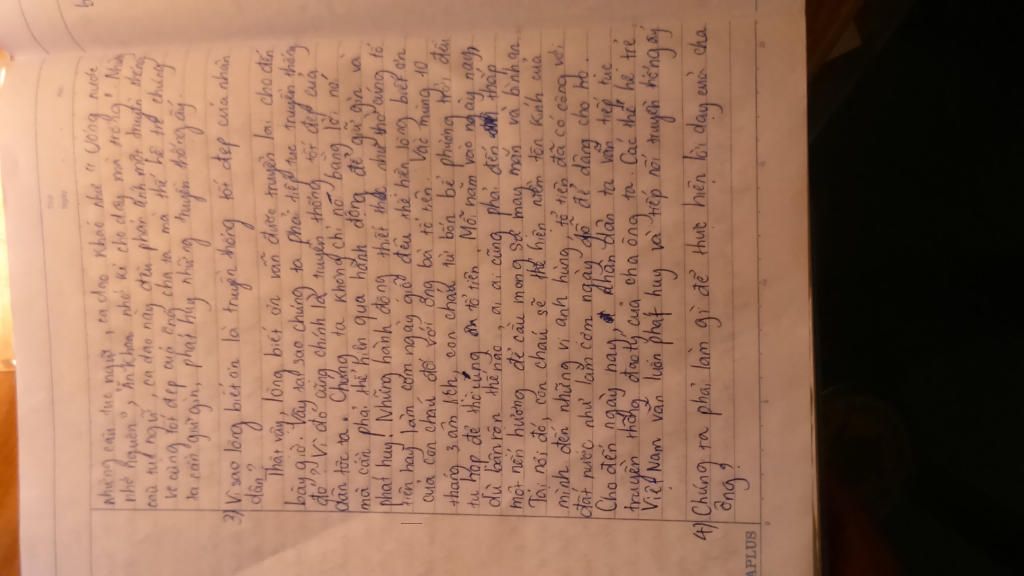 những câu tục ngữ, ca dao khác như "Uống nước
nhớ nguồn", "Ăn khoai nhớ kẻ cho dây mà trồng". Những
câu tục ngữ, ca dao này đều phản ánh nên truyền thống
vô cùng tốt đẹp của ông cha ta mà thế hệ trẻ chúng
ta cần giữ gìn, phát huy những truyền thống ấy
3) Vì sao lòng biết ơn là truyền thống tốt đẹp của nhân
dân?
Thật vậy, lòng biết ơn vẫn được truyền lại cho đến
bây giờ. Vậy tại sao chúng ta phải tiếp tục truyền thống
đó? Vì đó cũng chính là truyền thống tốt đẹp của
dân tộc ta. Chúng ta không chỉ nói bằng lời nó
mà cần phải thể hiện qua hành động để giữ gìn và
phát huy. Những hành động thiết thực như thờ cúng tổ
tiên hay làm cơm ngày giỗ đều thể hiện lòng biết ơn
của con cháu đối với ông bà tổ tiên. Vào mùng 10
tháng 3 âm lịch, con cháu từ bốn bể phương trời đều
tụ họp để thờ cúng tổ tiên. Mỗi năm vào ngày này,
dù bận rộn thế nào, ai ai cũng phải đến thắp
một nén hương để cầu mong sự may mắn và bình an.
Tại nơi đó, con cháu sẽ thể hiện niềm tôn kính của
mình đến những vị anh hùng, tổ tiên đã có công với
đất nước như làm cơm ngày giỗ để dâng cho họ.
Cho đến ngày nay, nhân dân ta vẫn tiếp tục
truyền thống đạo lý của cha ông ta. Các thế hệ trẻ
Việt Nam vẫn luôn phát huy và tiếp nối truyền thống ấy
4) Chúng ra phải làm gì để thực hiện lời dạy của cha
ông?
APLUS